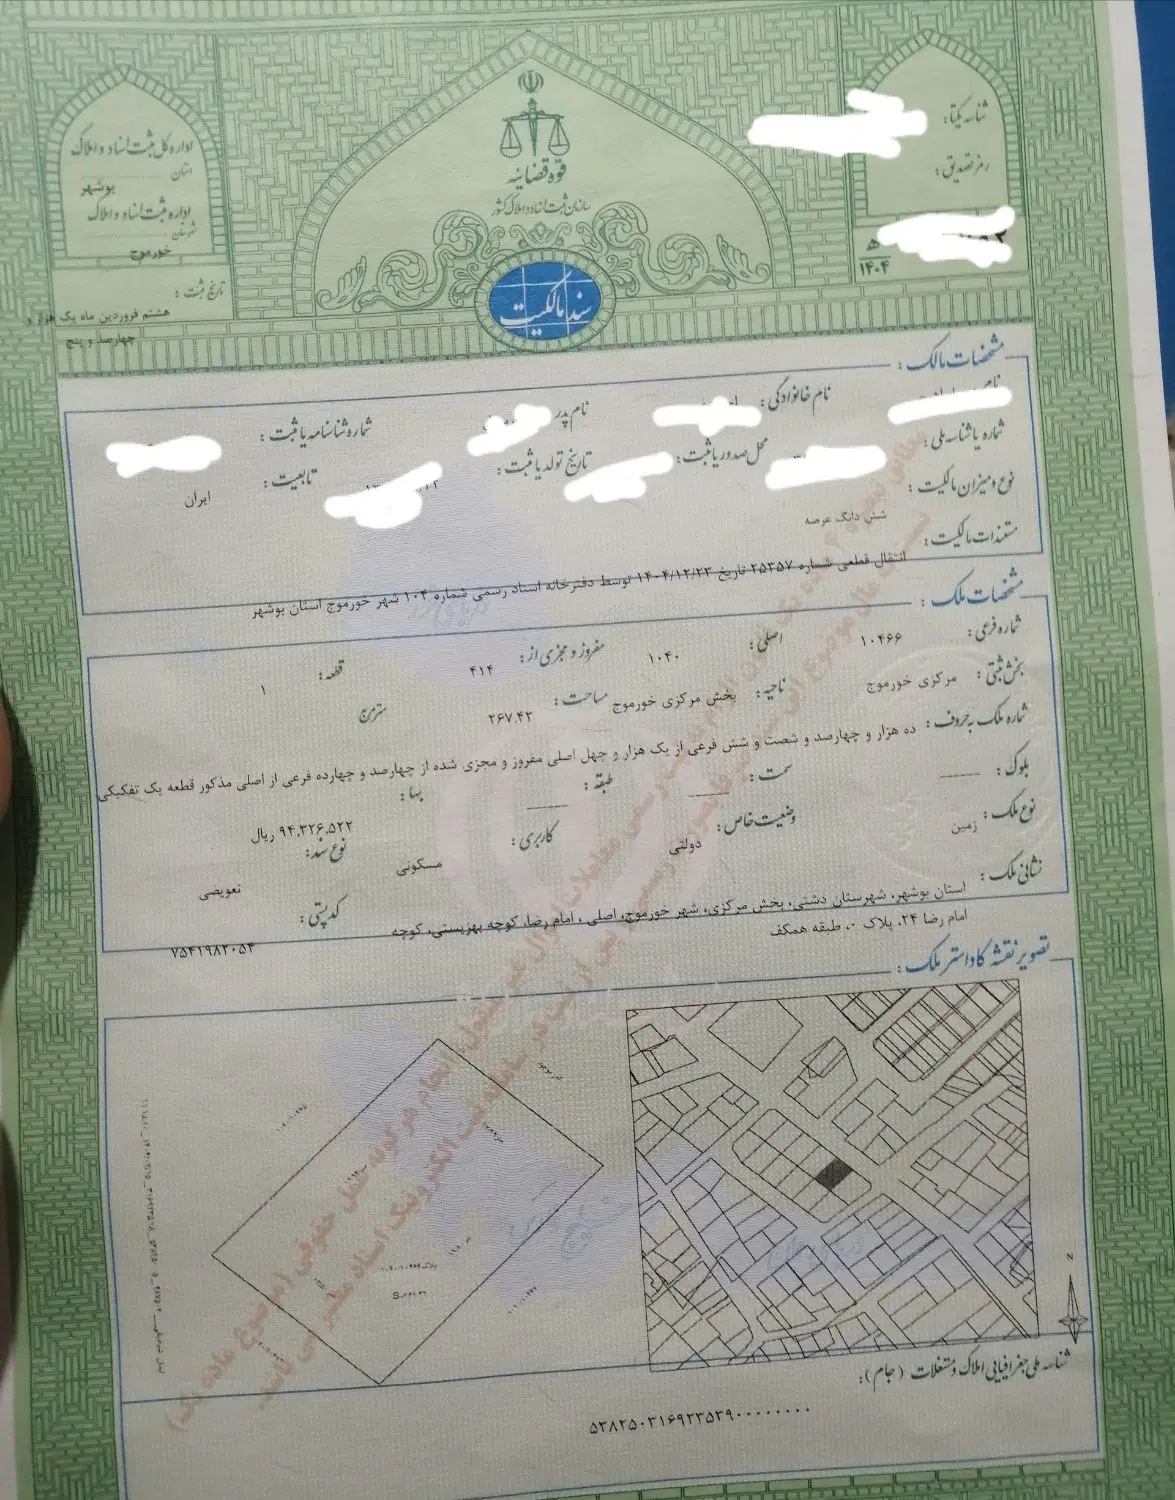 قوه قضائیه
سازمان ثبت اسناد و املاک کشور
سند مالکیت
شناسه یکتا:
رمز تصدیق:
۱۴۰۴
اداره کل ثبت اسناد و املاک
استان
بوشهر
اداره ثبت اسناد و املاک
شهرستان
خورموج
تاریخ ثبت:
هشتم فروردین ماه یک هزار و
چهارصد و پنج
مشخصات مالک:
نام خانوادگی: نام پدر شماره شناسنامه یا ثبت:
شماره یا شناسه ملی: محل صدور یا ثبت: تاریخ تولد یا ثبت: تابعیت: ایران
نوع و میزان مالکیت: شش دانگ عرصه
مستندات مالکیت: انتقال قطعی شماره ۲۵۳۵۷ تاریخ ۱۴۰۴/۱۲/۲۳ توسط دفترخانه اسناد رسمی شماره ۱۰۴ شهر خورموج استان بوشهر
مشخصات ملک:
شماره فرعی: ۱۰۴۶۶ اصلی: ۱۰۴۰ مفروز و مجزی از: ۴۱۴ قطعه: ۱
بخش ثبتی: مرکزی خورموج ناحیه: بخش مرکزی خورموج مساحت: ۲۶۷.۴۲ مترمربع
شماره ملک به حروف: ده هزار و چهارصد و شصت و شش فرعی از یک هزار و چهل اصلی مفروز و مجزی شده از چهارصد و چهارده فرعی از اصلی مذکور قطعه یک تفکیکی
بلوک: سمت: طبقه: بها: ۹۴,۳۲۶,۵۲۲ ریال
نوع ملک: زمین وضعیت خاص: دولتی کاربری: مسکونی نوع سند: تعویضی
نشانی ملک: استان بوشهر، شهرستان دشتی، بخش مرکزی، شهر خورموج، اصلی ، امام رضا، کوچه بهزیستی، کوچه
امام رضا ۲۴، پلاک ۰، طبقه همکف
کد پستی: ۷۵۴۱۹۸۲۰۵۴
تصویر نقشه کاداستر ملک:
N
شناسه ملی جغرافیایی املاک و مستغلات (جام):
۵۳۸۲۵۰۳۱۶۹۲۳۵۳۹۰۰۰۰۰۰۰۰۰